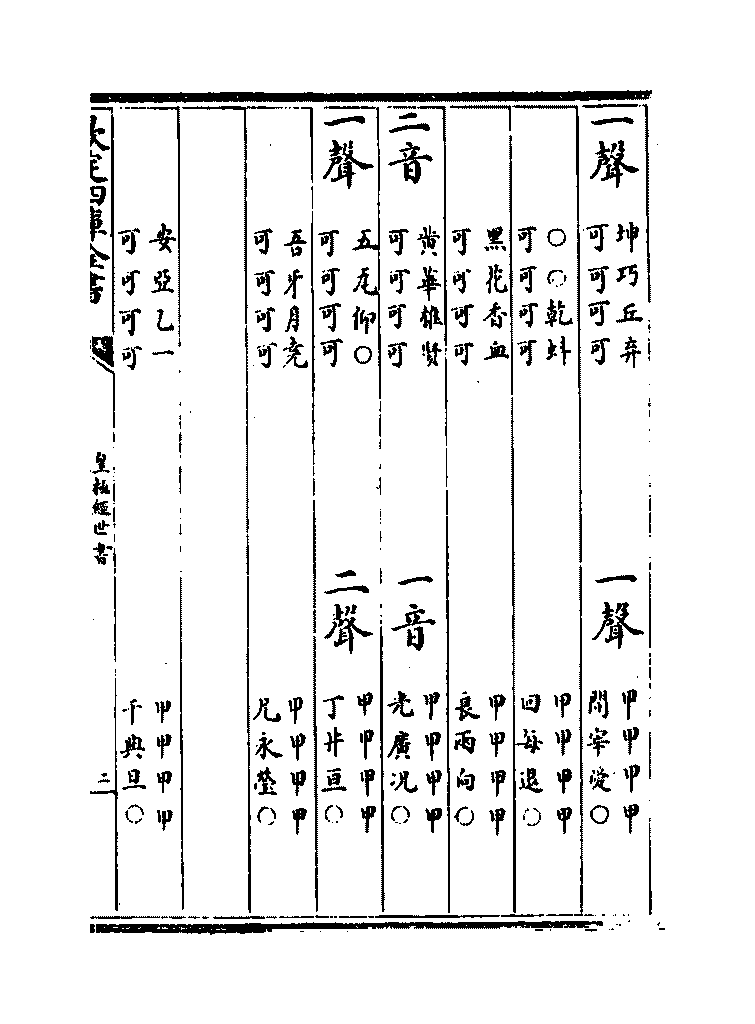 一聲 坤巧丘弃
可可可可
一聲 甲甲甲甲
開宰愛○
○○乾蚪
可可可可
甲甲甲甲
回每退○
黑花香血
可可可可
甲甲甲甲
良兩向○
二音 黄華雄賢
可可可可
一音 甲甲甲甲
光廣况○
一聲 五瓦仰○
可可可可
二聲 甲甲甲甲
丁井亘○
吾牙月堯
可可可可
甲甲甲甲
兄永瑩○
安亞乙一
可可可可
甲甲甲甲
千典旦○
欽定四庫全書
皇極經世書
二